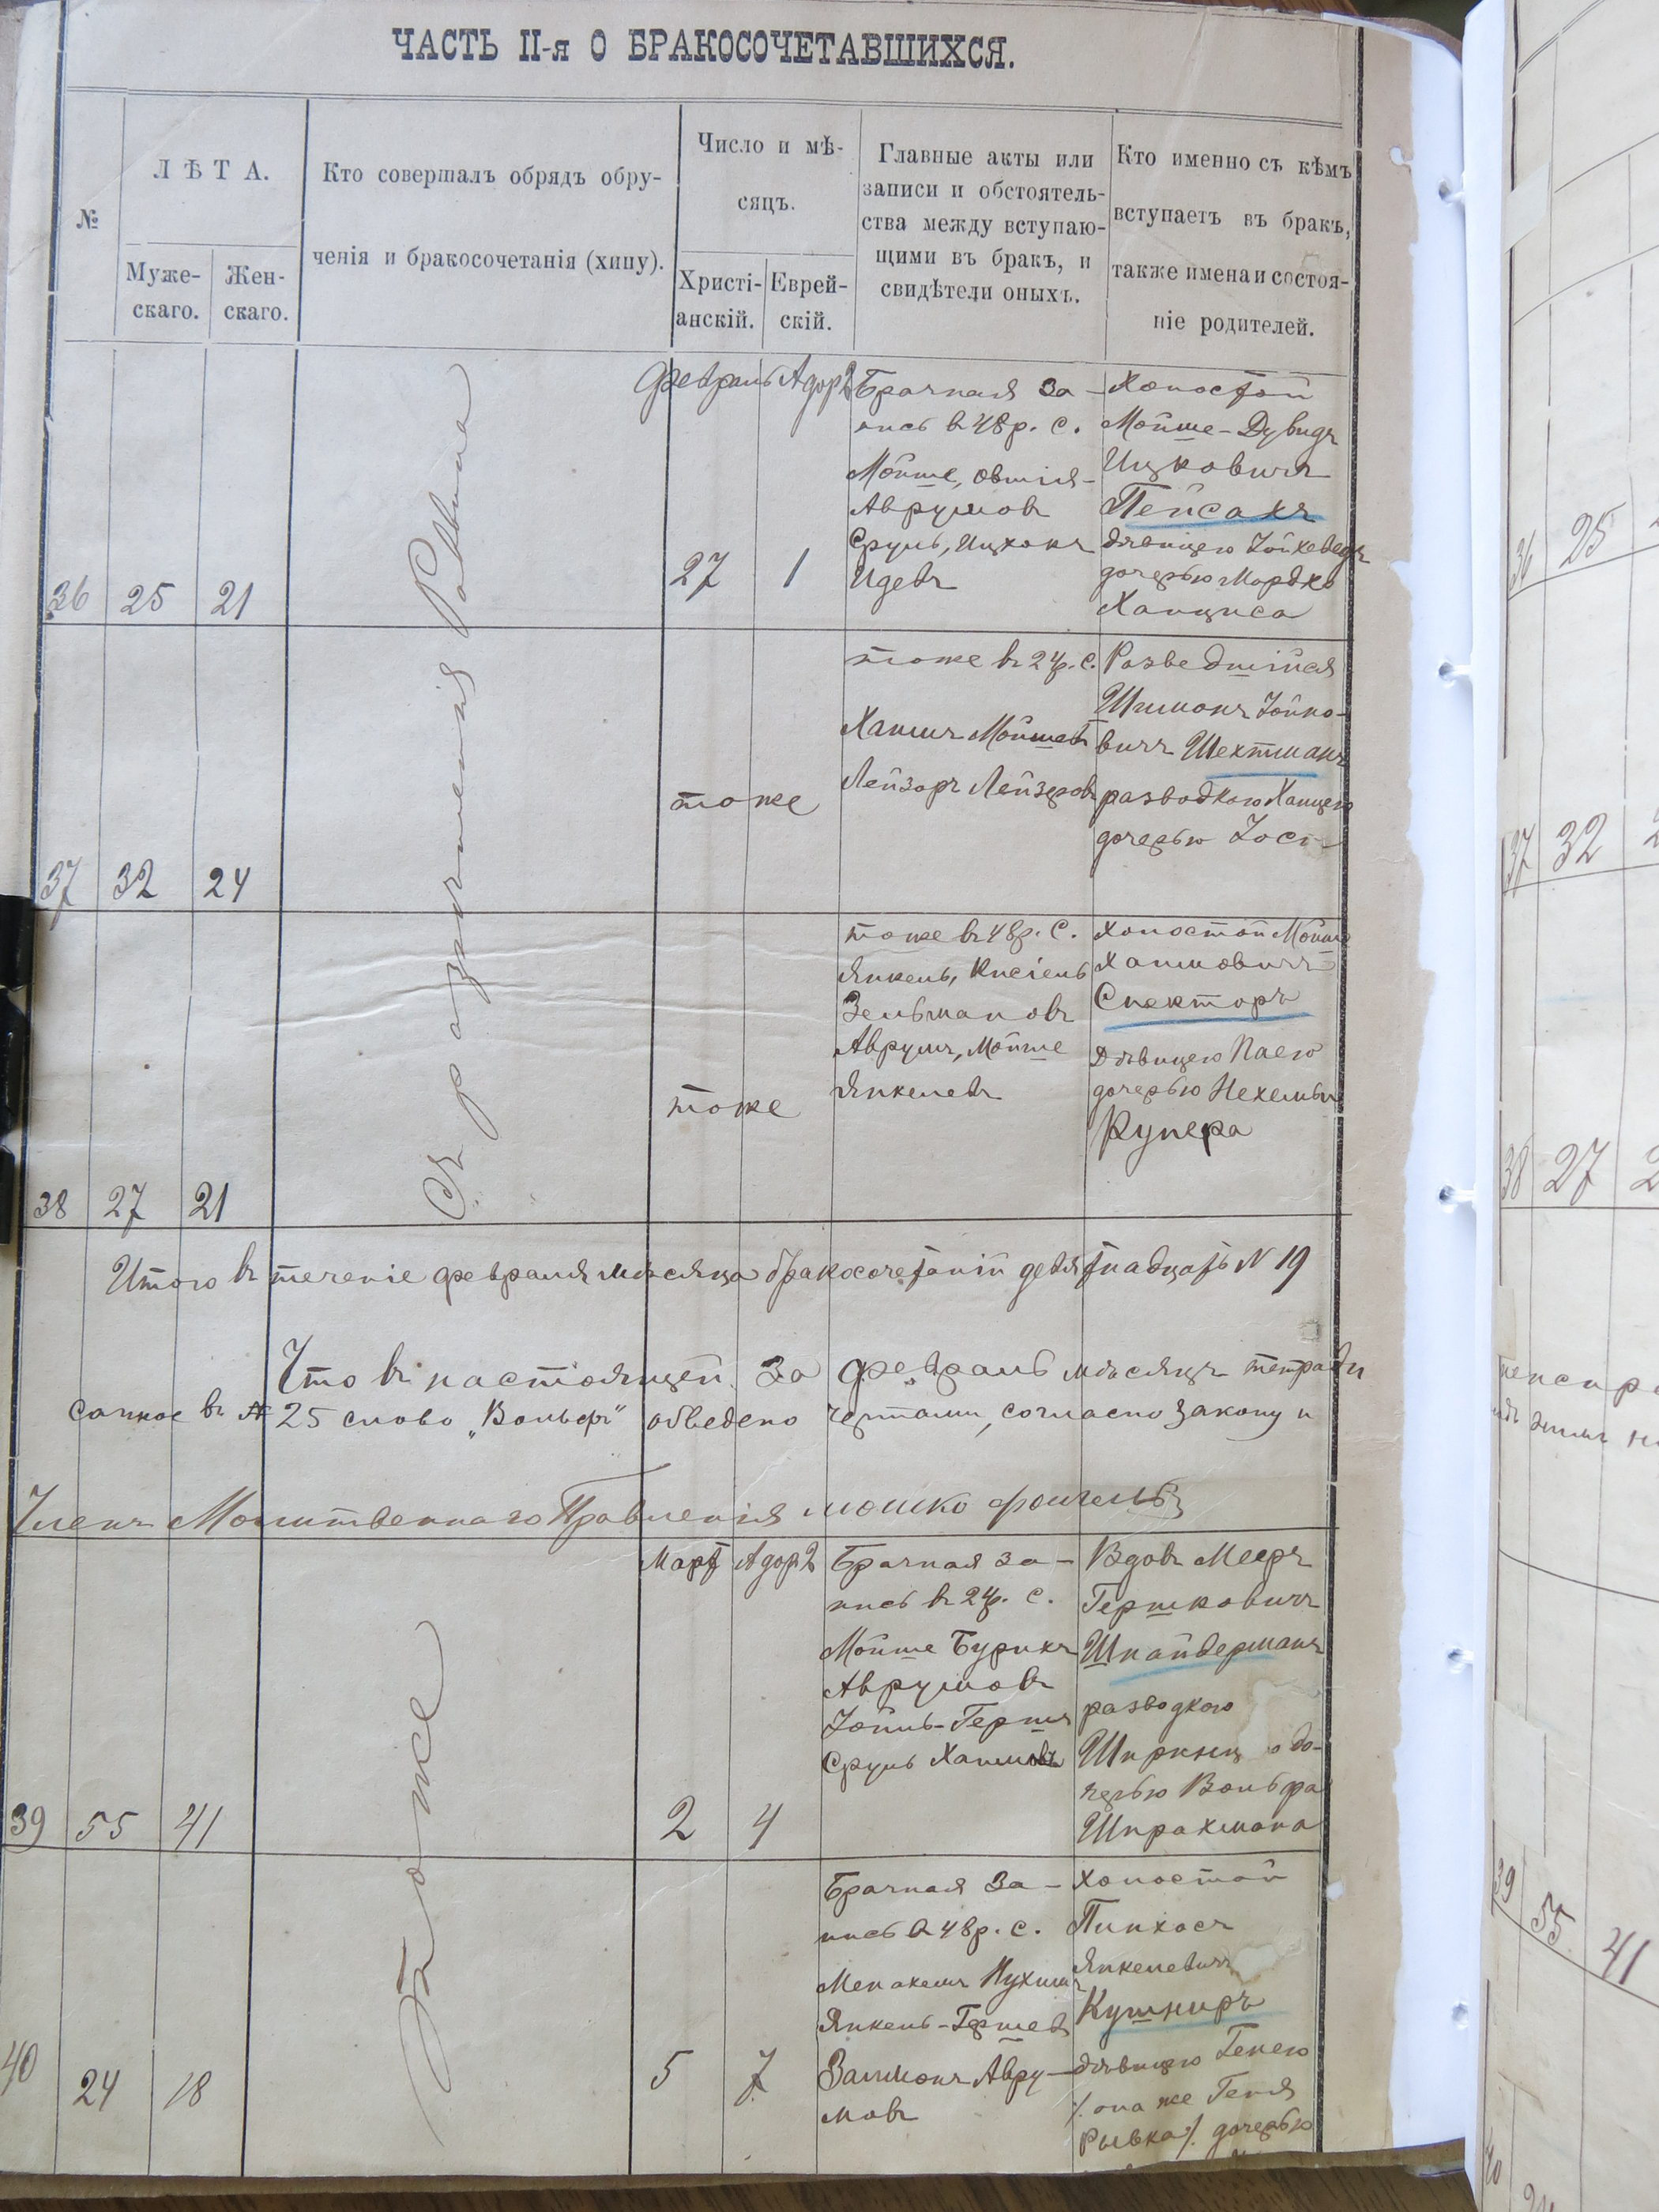 ЧАСТЬ II-я О БРАКОСОЧЕТАВШИХСЯ.
№
ЛѢТА.
Муже-
скаго.
Жен-
скаго.
Кто совершалъ обрядъ обру-
ченія и бракосочетанія (хипу).
Число и мѣ-
сяцъ.
Христі-
анскій.
Еврей-
скій.
Главные акты или
записи и обстоятель-
ства между вступаю-
щими въ бракъ, и
свидѣтели оныхъ.
Кто именно съ кѣмъ
вступаетъ въ бракъ,
также имена и состоя-
ніе родителей.
Съ разрѣшенія Раввина
36 25 21
Февраль Адор 2
27 1
Брачная за-
пись въ 48 р. с.
Мойше, Овшія-
Аврумовъ
Сруль, Ицхокъ
Идевъ
Холостой
Мойше-Дувидъ
Ицковичъ
Пейсахъ
дѣвицею Іойхеведъ
дочерью Мордко
Ханциса
37 32 24
тоже
тоже въ 24 р. с.
Хаимъ Мойшевъ
Лейзоръ Лейзеровъ
Разведшійся
Шимонъ Іойно-
вичъ Шехтманъ
разводкою Ханцею
дочерью
38 27 21
тоже
тоже въ 48 р. с.
Янкель, Кисіель
Зельмановъ
Аврумъ, Мойше
Янкелевъ
Холостой Мойше
Хаимовичъ
Спекторъ
дѣвицею Паею
дочерью Нехемьи
Купера
Итого въ теченіе февраля мѣсяца бракосочетаній девятнадцать N 19
Что въ настоящей за февраль мѣсяцъ тетради
саммое въ № 25 слово „Вольфъ“ обведено чертами, согласно закону и
Членъ Молитвеннаго Правленія мошко
Тоже
39 55 41
Мартъ Адор 2
2 4
Брачная за-
пись въ 24 р. с.
Мойше Бурихъ
Аврумовъ
Іойль-Гершъ
Сруль Хаимовъ
Вдовъ Мееръ
Гершковичъ
Шнайдерманъ
разводкою
до-
черью Вольфа
Шпрахмана
40 24 18
5 7
Брачная за-
пись въ 48 р. с.
Менахемъ Нухимъ
Янкель-Гершевъ
Залмонъ Авру-
мовъ
холостой
Пинхосъ
Янкелевичъ
Кушниръ
дѣвицею Генею
/. она же Геня
Рывка/. дочерью
36 25
37 32
38 27
39 55 41
40